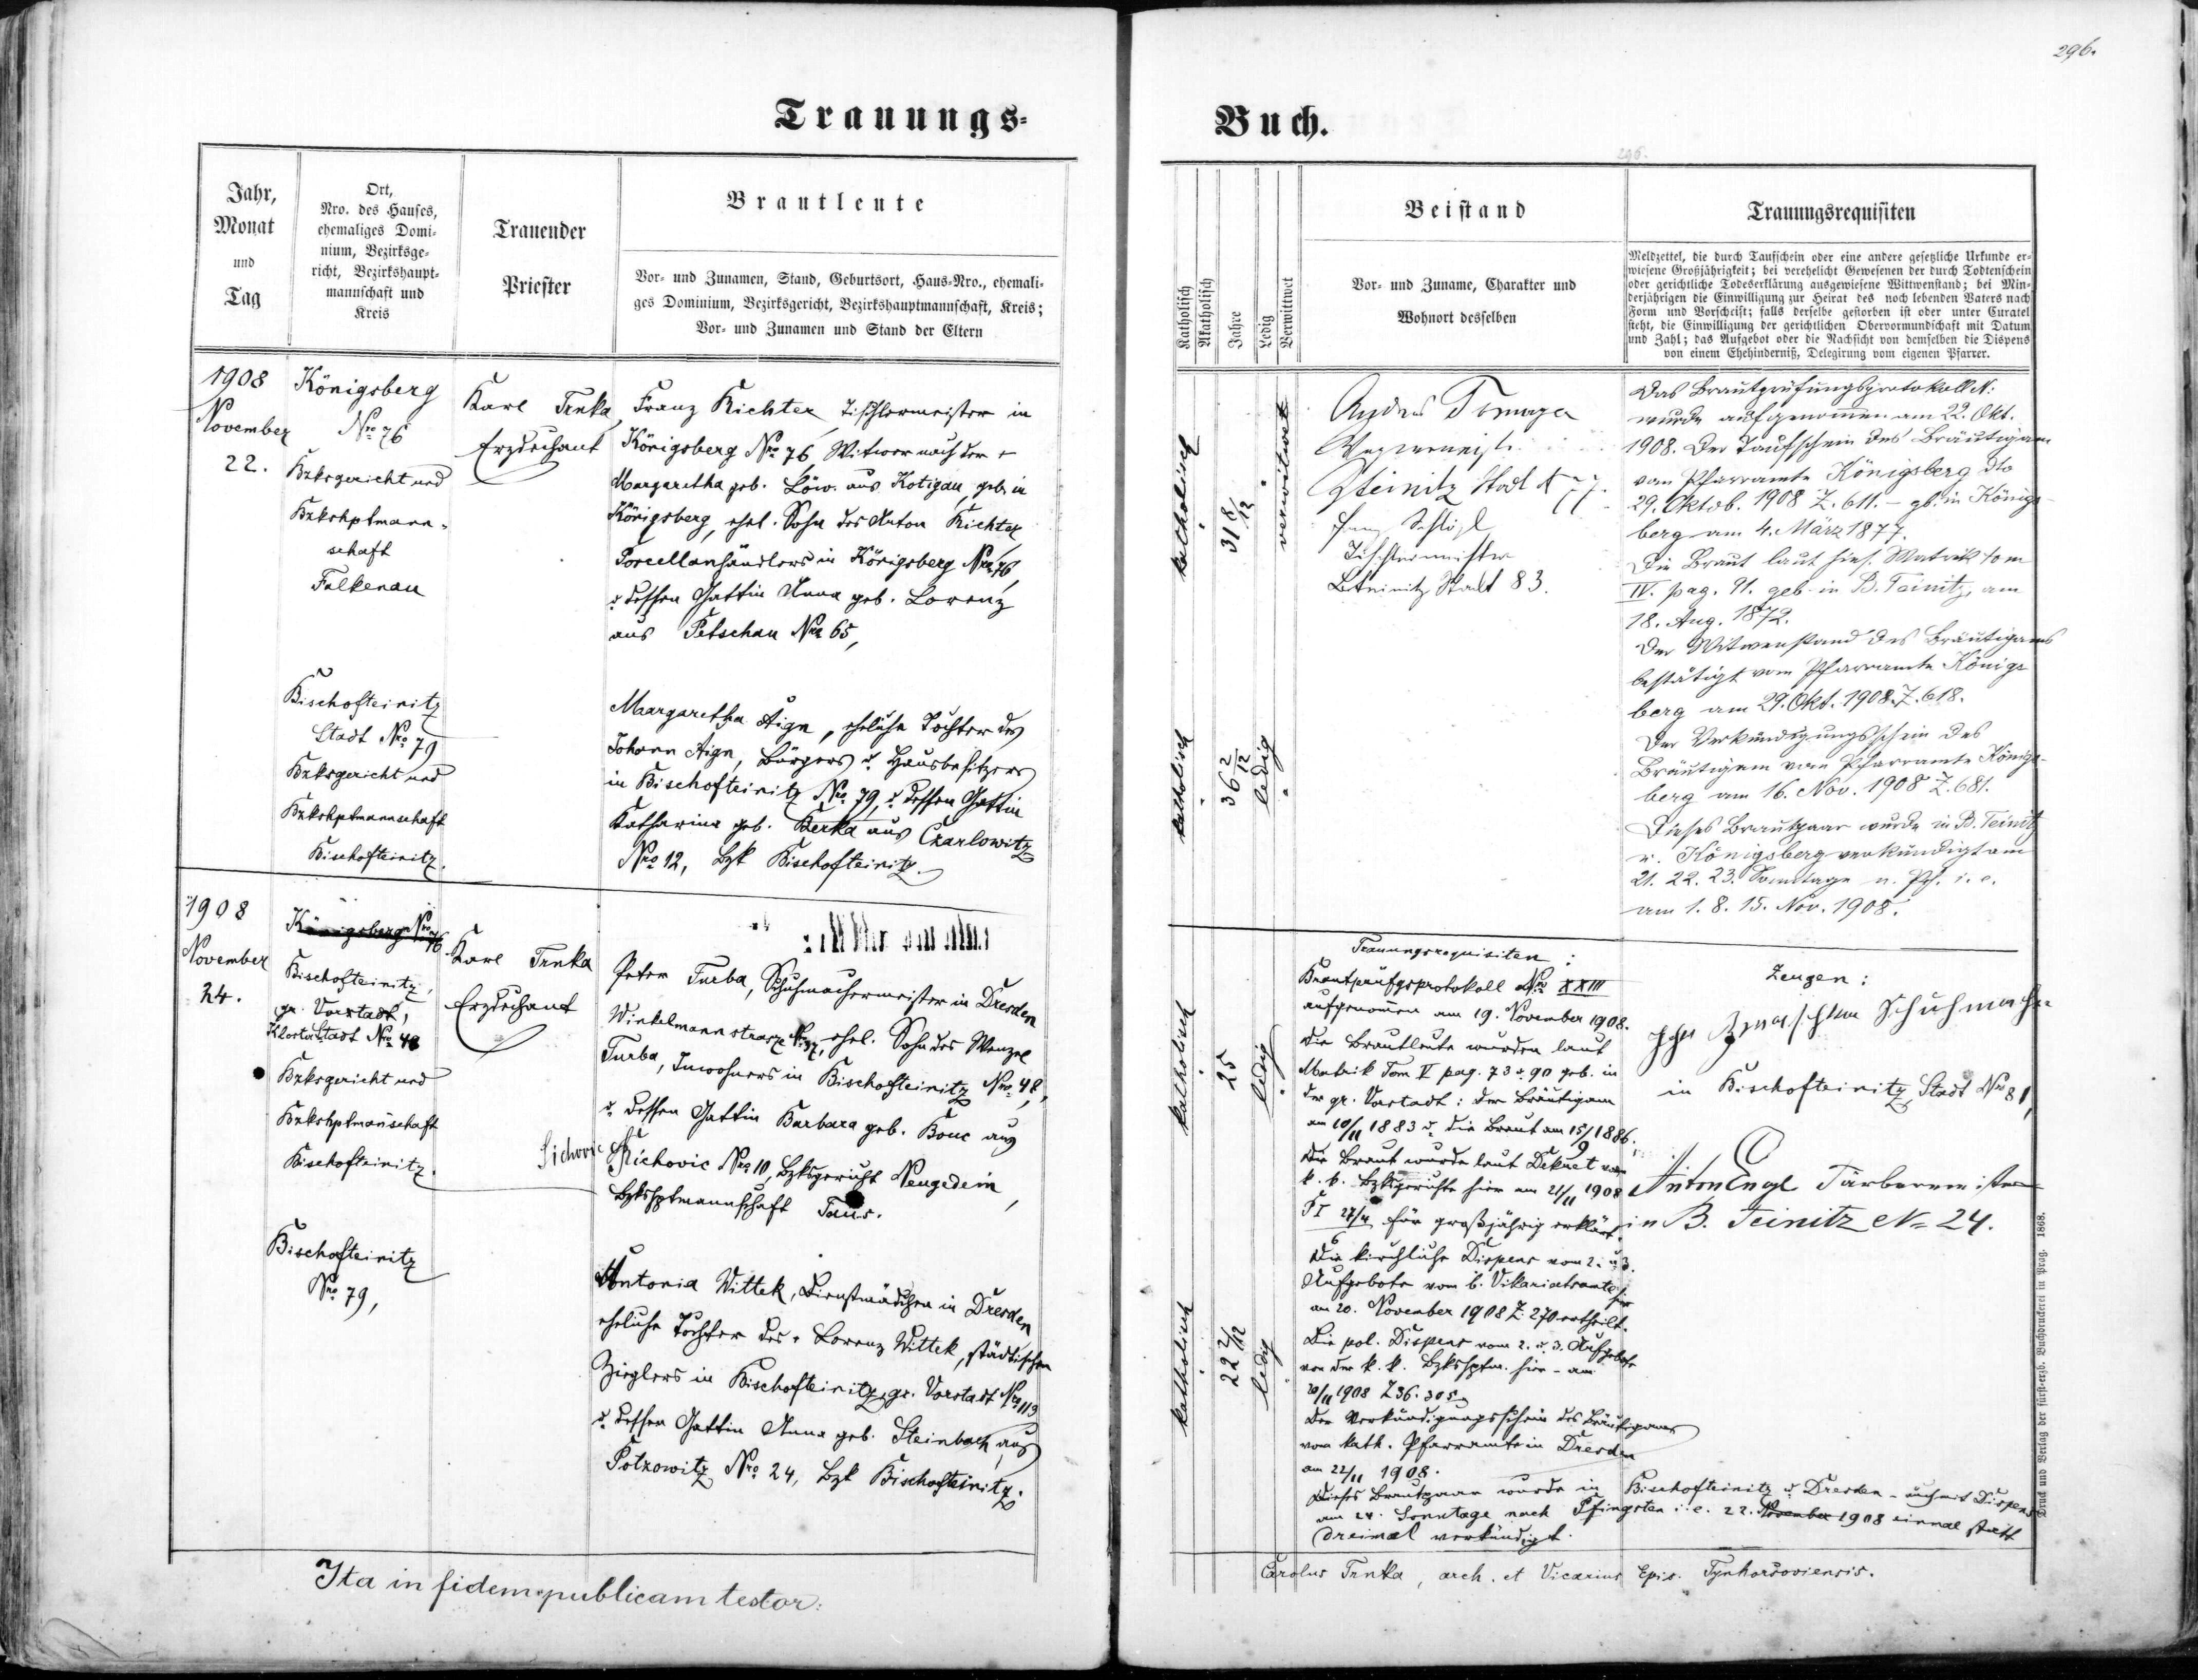 296.
Trauungs=
Buch.
296.
Jahr,
Monat
und
Tag
Ort,
Nro. des Hauses,
ehemaliges Domi-
nium, Bezirksge-
richt, Bezirkshaupt-
mannschaft und
Kreis
Trauender
Priester
Brautleute
Vor- und Zunamen, Stand, Geburtsort, Haus-Nro., ehemali-
ges Dominium, Bezirksgericht, Bezirkshauptmannschaft, Kreis;
Vor- und Zunamen und Stand der Eltern
Katholisch
Akatholisch
Jahre
Ledig
Verwittwet
Beistand
Vor- und Zuname, Charakter und
Wohnort desselben
Trauungsrequisiten
Meldzettel, die durch Taufschein oder eine andere gesetzliche Urkunde er-
wiesene Großjährigkeit; bei verehelicht Gewesenen der durch Todtenschein
oder gerichtliche Todeserklärung ausgewiesene Wittwenstand; bei Min-
derjährigen die Einwilligung zur Heirat des noch lebenden Vaters nach
Form und Vorschrift; falls derselbe gestorben ist oder unter Curatel
steht, die Einwilligung der gerichtlichen Obervormundschaft mit Datum
und Zahl; das Aufgebot oder die Nachsicht von demselben die Dispens
von einem Ehehinderniß, Delegirung vom eigenen Pfarrer.
1908
November
22.
Königsberg
Nro 76
Bzksgericht und
Bzkshptmann-
schaft
Falkenau
Karl Trnka
Erzdechant
Franz Richter, Tischlermeister in
Königsberg Nro 76, Witwer nach der +
Margaretha geb. Löw. aus Kotigau, geb. in
Königsberg, ehel. Sohn des Anton Richter,
Porcellanhändlers in Königsberg Nro 76,
u. dessen Gattin Anna geb. Lorenz
aus Petschau Nro 65,
Bischofteinitz
Stadt Nro 79
Bzksgericht und
Bzkshptmannschaft
Bischofteinitz.
Margaretha Aign, eheliche Tochter des
Johann Aign, Bürgers u. Hausbesitzers
in Bischofteinitz Nro 79, u. dessen Gattin
Katharina geb. Berka aus Czarlowitz
Nro 12, Bzk Bischofteinitz.
katholisch
31 8/12
verwitwet
katholisch
36 2/12
ledig
Teinitz Stadt N 77.
Tischlermeister
B.teinitz, Stadt 83.
Das Brautprüfungsprotokoll N.
wurde aufgenommen am 22. Okt.
1908. Der Taufschein des Bräutigam
vom Pfarramte Königsberg dto
29. Oktob. 1908 Z. 611. – gb. in Königs-
berg am 4. März 1877.
Die Braut laut hies. Matrik tom
IV. pag. 91. geb. in B. Teinitz, am
18. Aug. 1872.
Der Witwenstand des Bräutigams
bestätigt vom Pfarramte Königs-
berg am 29. Okt. 1908. Z. 618.
Der Verkündigungsschein des
Bräutigam vom Pfarramte Königs-
berg am 16. Nov. 1908 Z. 681.
Dieses Brautpaar wurde in B. Teinitz
u. Königsberg verkündigt am
21. 22. 23. Sonntage n. Pf. i. e.
am 1. 8. 15. Nov. 1908.
1908
November
24.
Königsberg Nro 76
Bischofteinitz,
gr. Vorstadt,
Stadt Nro 48
Bzksgericht und
Bzkshptmannschaft
Bischofteinitz.
Karl Trnka
Erzdechant
Peter Turba, Schuhmachermeister in Dresden
Winkelmannstrasse Nr 37, ehel. Sohn des Wenzel
Turba, Inwohners in Bischofteinitz Nro 48,
u. dessen Gattin Barbara geb. Bonc aus
Sichovic Nro 10, Bzksgericht Neugedein,
Bzkshptmannschaft Taus.
Bischofteinitz
Nro 79,
Antonia Wittek, Dienstmädchen in Dresden
eheliche Tochter des + Lorenz Wittek, städtischen
Zieglers in Bischofteinitz, gr. Vorstadt Nro 113
u. dessen Gattin Anna geb. Steinbach, aus
Potzowitz Nro 24, Bzk Bischofteinitz.
katholisch
25
ledig
katholisch
22 2/12
ledig
Trauungsrequisiten:
Brautprüfgsprotokoll Nro XXIII
aufgenommen am 19. November 1908.
Die Brautleute wurden laut
Matrik Tom V pag. 73 u. 90 geb. in
der gr. Vorstadt: der Bräutigam
am 10/11 1883 u. die Braut am 15/9 1886.
Die Braut wurde laut Dekret vom
k. k. Bzksgerichte hier am 21/11 1908
für großjährig erklärt.
Die kirchliche Dispens vom 2. u. 3.
Aufgebote vom b. Vikariatsamte hier
am 20. November 1908 Z. 270 ertheilt.
Die pol. Dispens vom 2. u. 3. Aufgebote
von der k. k. Bzkshptm. hier - am
20/11 1908 Z 36.305
Der Verkündigungsschein des Bräutigams
vom kath. Pfarramte in Dresden
am 22/11 1908.
Dieses Brautpaar wurde in Bischofteinitz u. Dresden - auch mit Dispens
am 24. Sonntage nach Pfingsten i. e. 22. November 1908 einmal statt
dreimal verkündigt.
Zeugen:
Schuhmacher
in Bischofteinitz, Stadt Nro 81,
Anton Engl Färbermeister
in B. Teinitz No 24.
Ita in fidem publicam testor:
Carolus Trnka, arch. et Vicarius Epis. Tynhorsoviensis.
Druck und Verlag der fürst-erzb. Buchdruckerei in Prag. 1868.